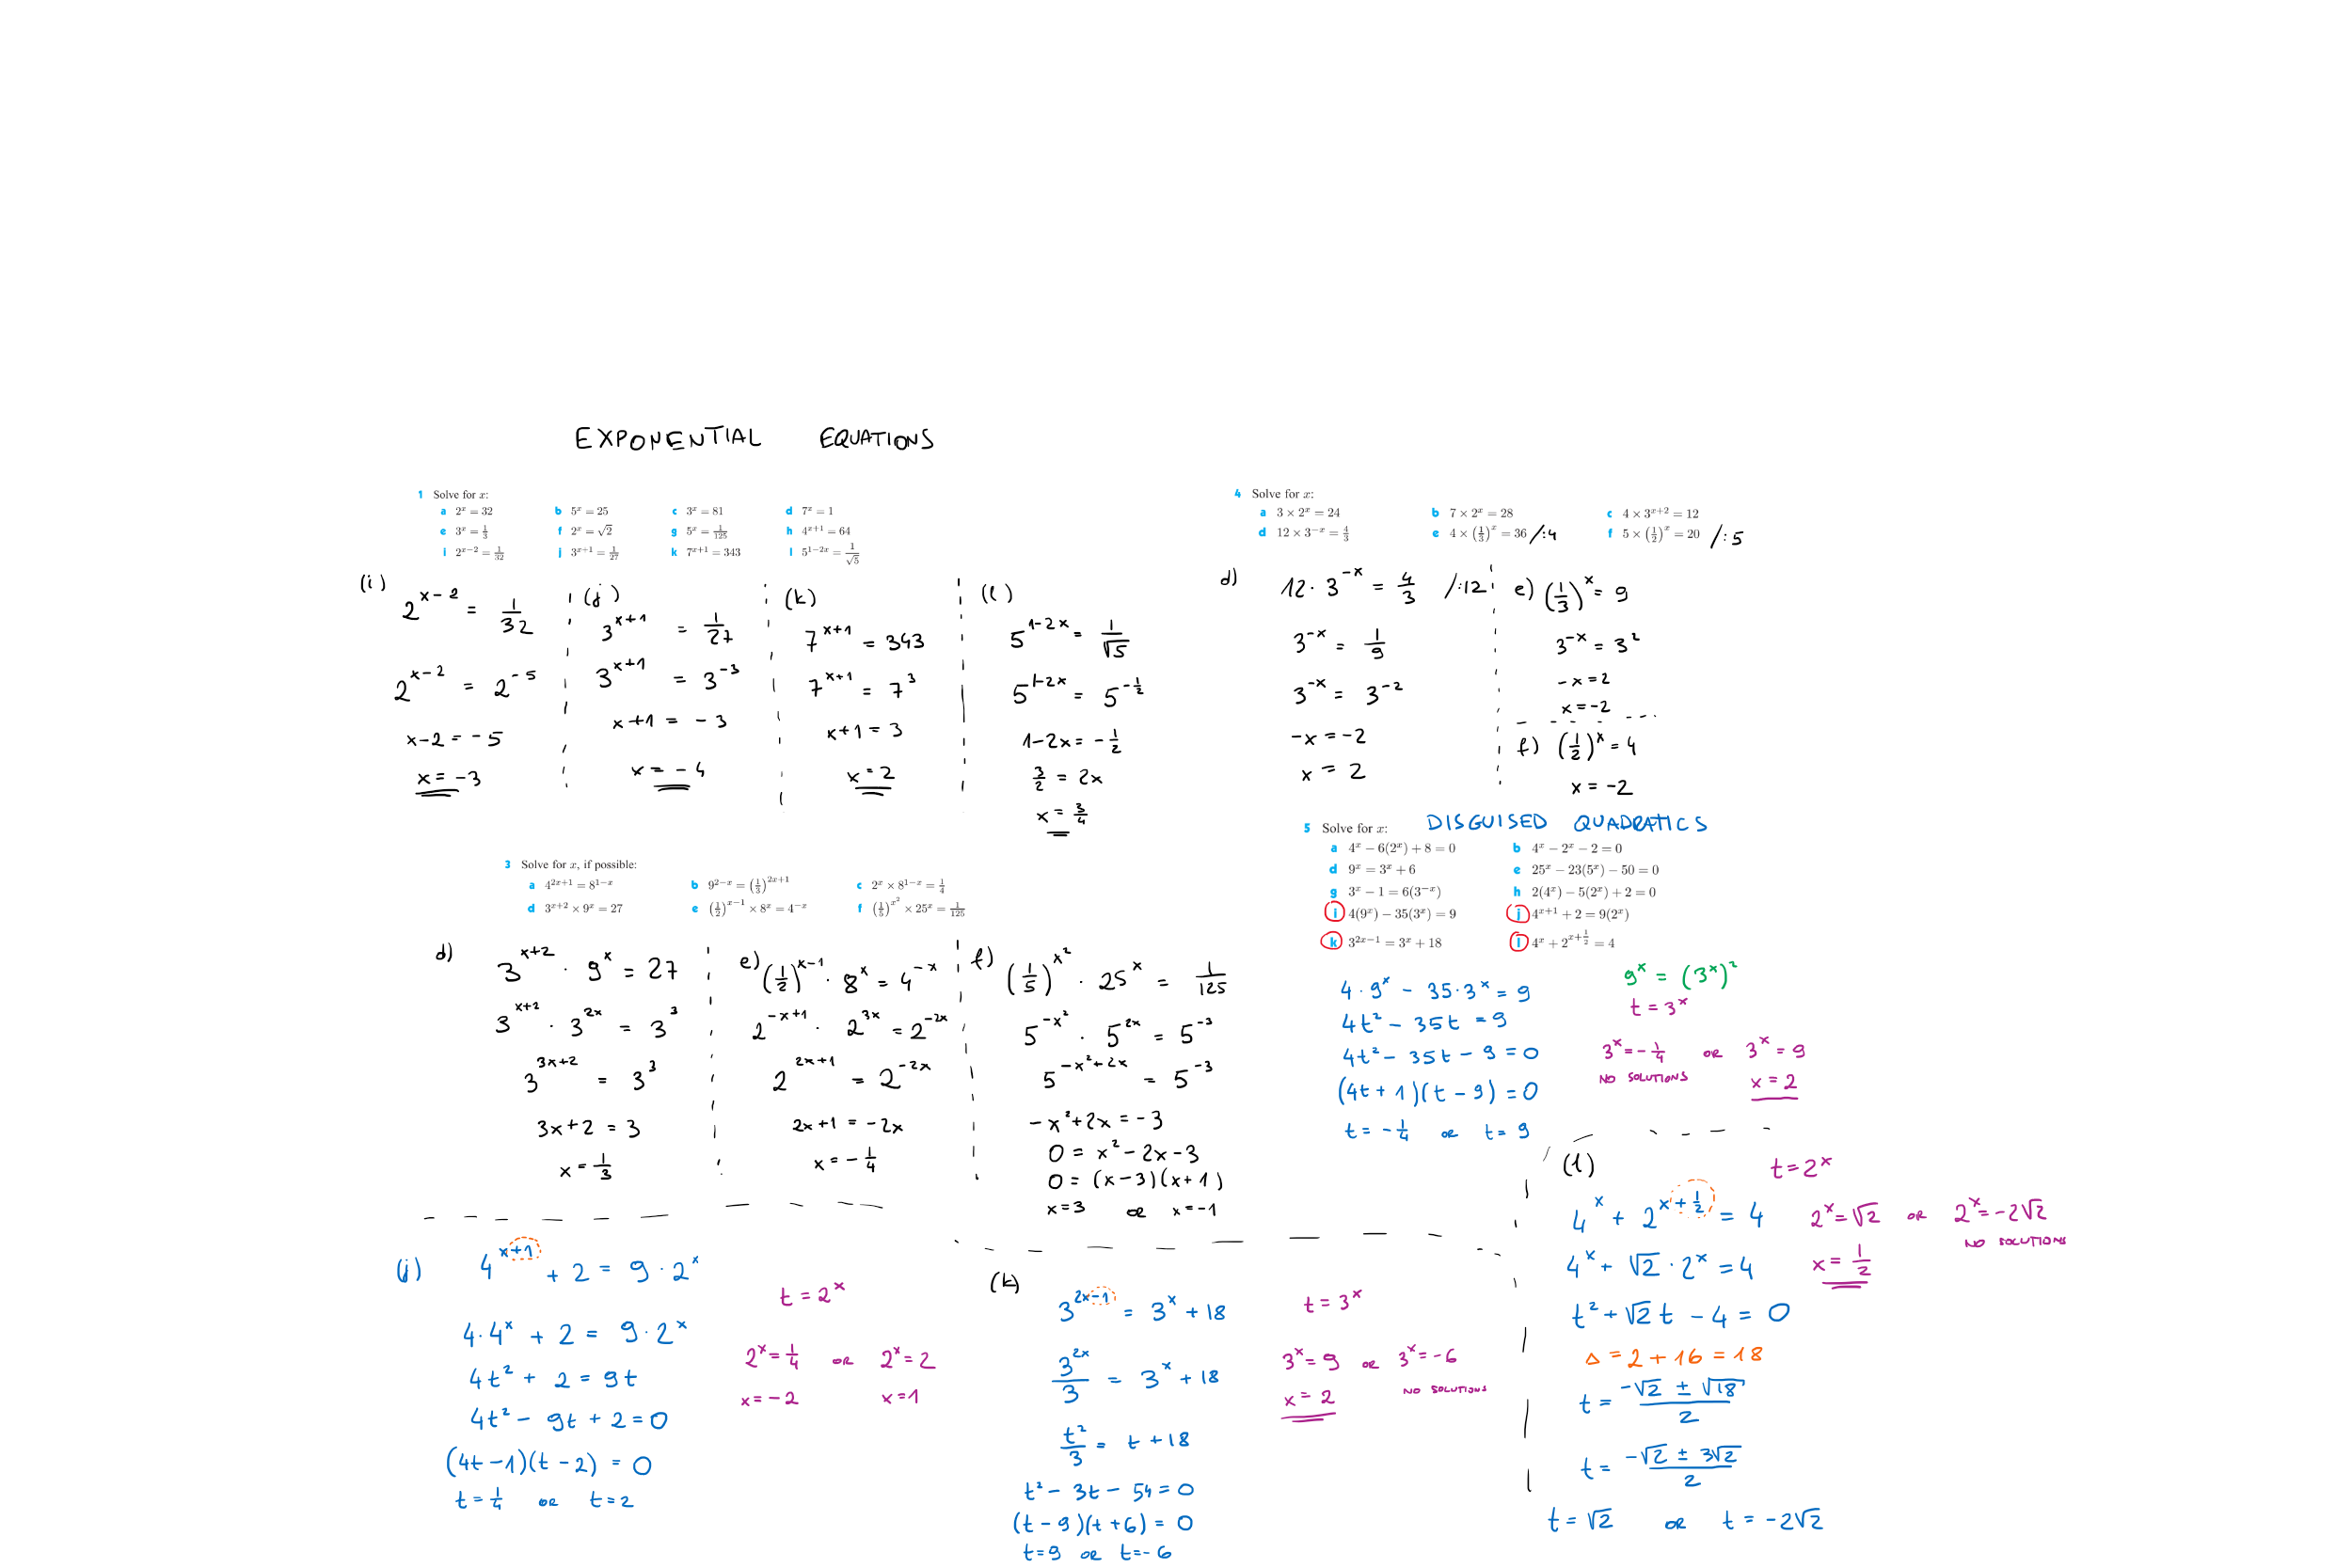 EXPONENTIAL EQUATIONS
1 Solve for x:
a 2^x = 32 b 5^x = 25 c 3^x = 81 d 7^x = 1
e 3^x = 1/3 f 2^x = √2 g 5^x = 1/125 h 4^(x+1) = 64
i 2^(x−2) = 1/32 j 3^(x+1) = 1/27 k 7^(x+1) = 343 l 5^(1−2x) = 1/√5
(i)
2^(x−2) = 1/32
2^(x−2) = 2^(−5)
x−2 = −5
x = −3
(j)
3^(x+1) = 1/27
3^(x+1) = 3^(−3)
x+1 = −3
x = −4
(k)
7^(x+1) = 343
7^(x+1) = 7^3
x+1 = 3
x = 2
(l)
5^(1−2x) = 1/√5
5^(1−2x) = 5^(−1/2)
1−2x = −1/2
3/2 = 2x
x = 3/4
4 Solve for x:
a 3 × 2^x = 24 b 7 × 2^x = 28 c 4 × 3^(x+2) = 12
d 12 × 3^(−x) = 4/3 e 4 × (1/3)^x = 36 /:4 f 5 × (1/2)^x = 20 /:5
d) 12 · 3^(−x) = 4/3 /:12
3^(−x) = 1/9
3^(−x) = 3^(−2)
−x = −2
x = 2
e) (1/3)^x = 9
3^(−x) = 3^2
−x = 2
x = −2
f) (1/2)^x = 4
x = −2
3 Solve for x, if possible:
a 4^(2x+1) = 8^(1−x) b 9^(2−x) = (1/3)^(2x+1) c 2^x × 8^(1−x) = 1/4
d 3^(x+2) × 9^x = 27 e (1/2)^(x−1) × 8^x = 4^(−x) f (1/5)^(x^2) × 25^x = 1/125
d) 3^(x+2) · 9^x = 27
3^(x+2) · 3^(2x) = 3^3
3^(3x+2) = 3^3
3x+2 = 3
x = 1/3
e) (1/2)^(x−1) · 8^x = 4^(−x)
2^(−x+1) · 2^(3x) = 2^(−2x)
2^(2x+1) = 2^(−2x)
2x+1 = −2x
x = −1/4
f) (1/5)^(x^2) · 25^x = 1/125
5^(−x^2) · 5^(2x) = 5^(−3)
5^(−x^2+2x) = 5^(−3)
−x^2+2x = −3
0 = x^2−2x−3
0 = (x−3)(x+1)
x=3 OR x=−1
5 Solve for x: DISGUISED QUADRATICS
a 4^x − 6(2^x) + 8 = 0 b 4^x − 2^x − 2 = 0
d 9^x = 3^x + 6 e 25^x − 23(5^x) − 50 = 0
g 3^x − 1 = 6(3^(−x)) h 2(4^x) − 5(2^x) + 2 = 0
i 4(9^x) − 35(3^x) = 9 j 4^(x+1) + 2 = 9(2^x)
k 3^(2x−1) = 3^x + 18 l 4^x + 2^(x+1/2) = 4
4·9^x − 35·3^x = 9
4t^2 − 35t = 9
4t^2 − 35t − 9 = 0
(4t+1)(t−9) = 0
t = −1/4 OR t = 9
9^x = (3^x)^2
t = 3^x
3^x = −1/4 OR 3^x = 9
NO SOLUTIONS x = 2
(j) 4^(x+1) + 2 = 9·2^x
4·4^x + 2 = 9·2^x
4t^2 + 2 = 9t
4t^2 − 9t + 2 = 0
(4t−1)(t−2) = 0
t = 1/4 OR t = 2
t = 2^x
2^x = 1/4 OR 2^x = 2
x = −2 x = 1
(k)
3^(2x−1) = 3^x + 18
3^(2x)/3 = 3^x + 18
t^2/3 = t + 18
t^2 − 3t − 54 = 0
(t−9)(t+6) = 0
t=9 OR t=−6
t = 3^x
3^x = 9 OR 3^x = −6
x = 2 NO SOLUTIONS
(l) t = 2^x
4^x + 2^(x+1/2) = 4
4^x + √2·2^x = 4
t^2 + √2t − 4 = 0
Δ = 2 + 16 = 18
t = (−√2 ± √18)/2
t = (−√2 ± 3√2)/2
t = √2 OR t = −2√2
2^x = √2 OR 2^x = −2√2
x = 1/2 NO SOLUTIONS